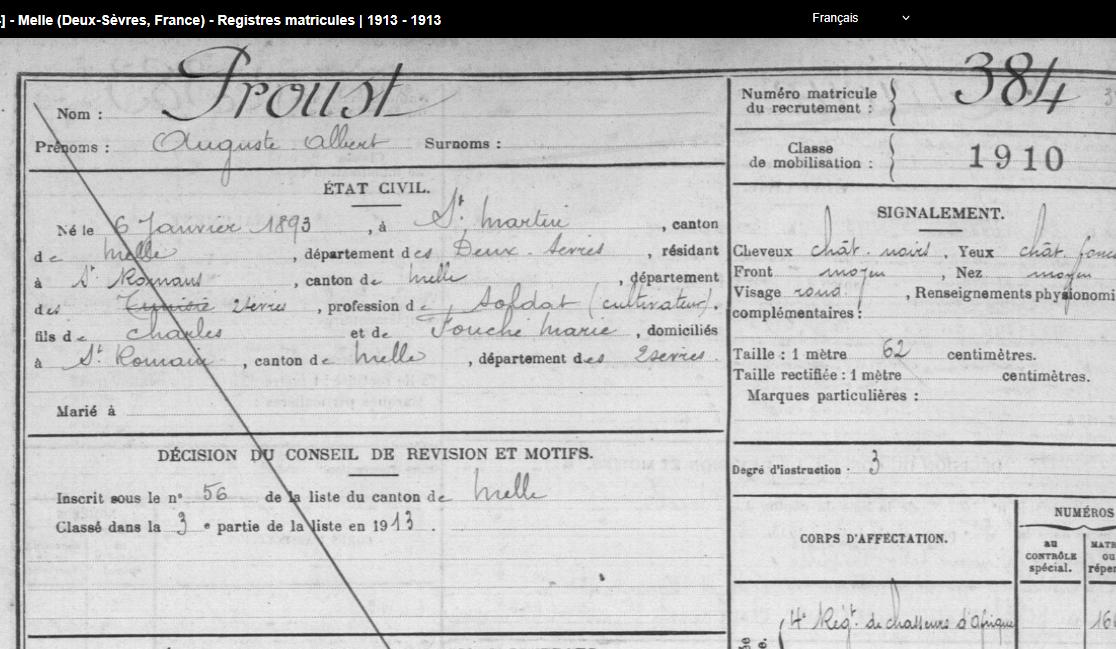 ] - Melle (Deux-Sèvres, France) - Registres matricules | 1913 - 1913
Français
Nom : Proust
Prénoms : Auguste Albert Surnoms :
Numéro matricule du recrutement : 384
Classe de mobilisation : 1910
ÉTAT CIVIL.
Né le 6 Janvier 1893, à St. Martin, canton
de Melle, département des Deux-Sevres, résidant
à St Romans, canton de Melle, département
des Tunisie 2 Sevres, profession de Soldat (cultivateur).
fils de Charles et de Fouché Marie, domiciliés
à St. Romans, canton de Melle, département des 2 Sevres.
Marié à
SIGNALEMENT.
Cheveux chât. noirs. Yeux chât. fonc
Front moyen, Nez moyen
Visage rond, Renseignements physionomi
complémentaires :
Taille : 1 mètre 62 centimètres.
Taille rectifiée : 1 mètre centimètres.
Marques particulières :
Degré d'instruction. 3
DÉCISION DU CONSEIL DE REVISION ET MOTIFS.
Inscrit sous le n° 56 de la liste du canton de Melle
Classé dans la 3e partie de la liste en 1913.
CORPS D'AFFECTATION.
NUMÉROS
au CONTRÔLE spécial.
MATR
ou
réper
4e Régt. de chasseurs d'Afrique